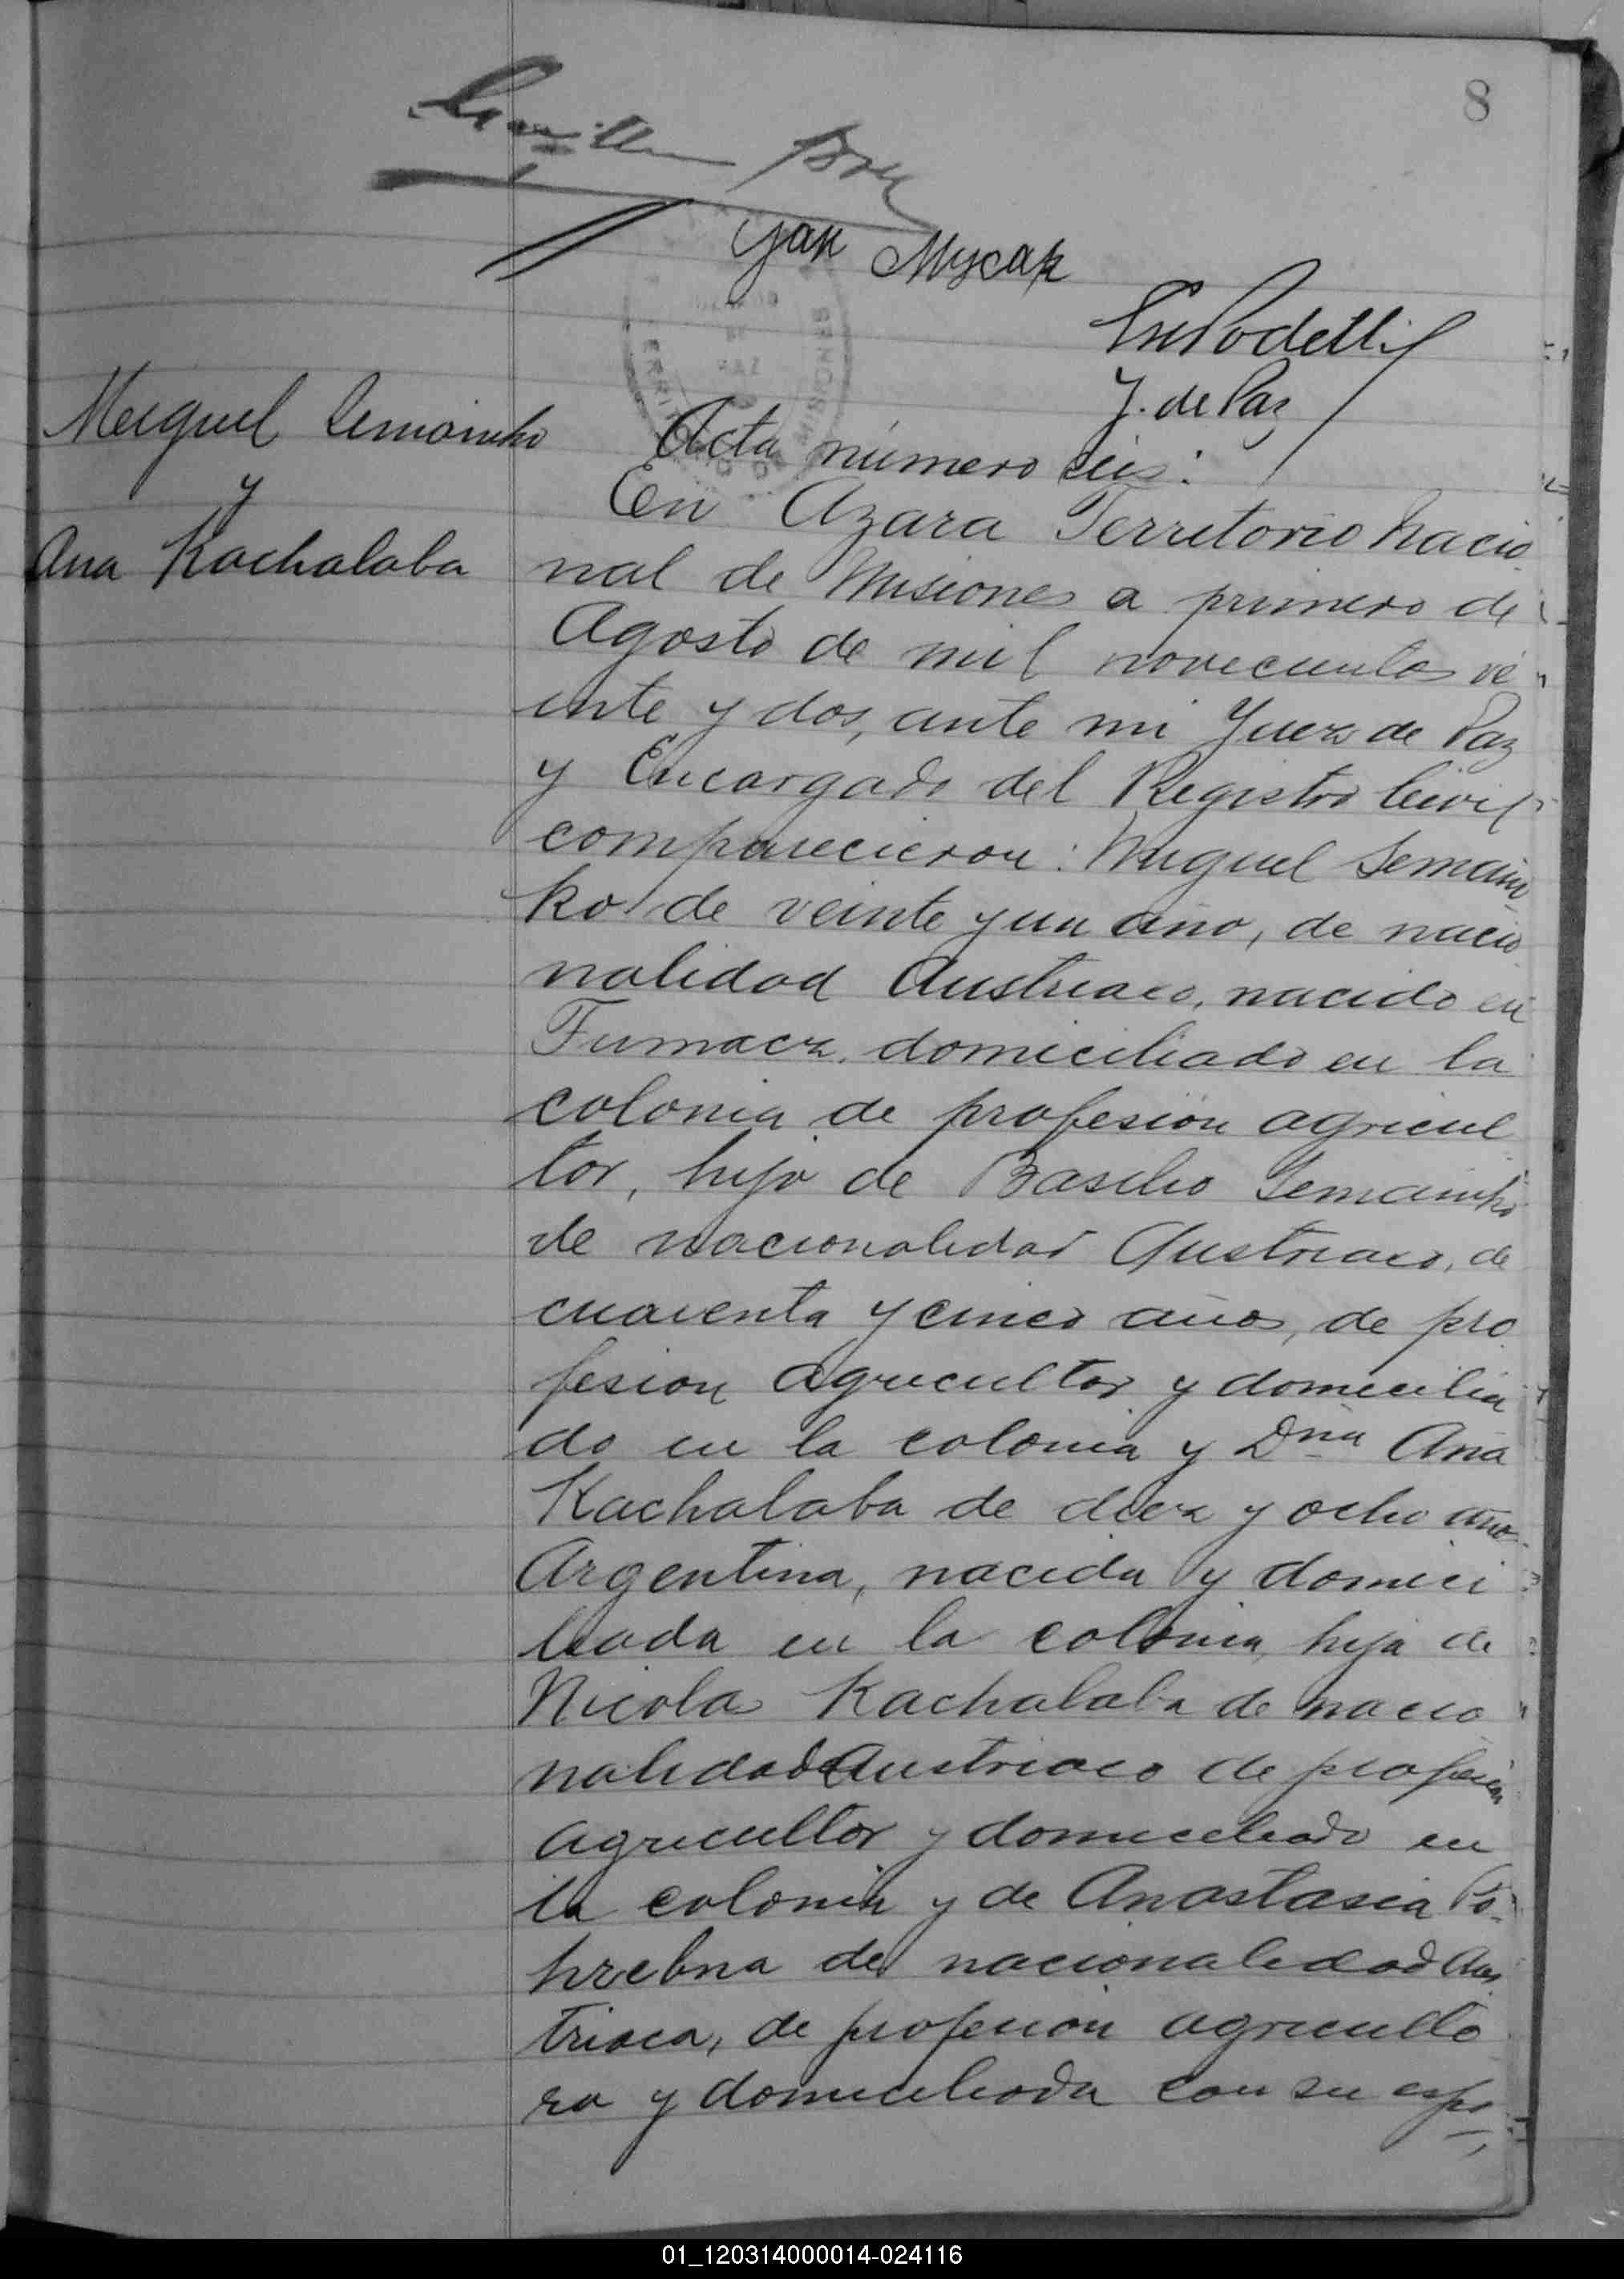 8
Jan Mycak
J. de Paz
Meiguel Semainko
y
Ana Kachalaba
Acta número seis:
En Azara Territorio Nacio
nal de Misiones a primero de
Agosto de mil novecientos ve
inte y dos, ante mi Juez de Paz
y Encargado del Registro Civil
comparecieron: Miguel Semain
ko de veinte y un año, de nacio
nalidad Austriaco, nacido en
Tumacz, domiciliado en la
colonia de profesión agricul
tor, hijo de Basilio Semainko
de nacionalidad Austriaco, de
cuarenta y cinco años, de pro
fesion agricultor y domicilia
do en la colonia y Dña Ana
Kachalaba de diez y ocho años
Argentina, nacida y domici
liada en la colonia, hija de
Nicola Kachalaba de nacio
nalidad Austriaco de profesion
agricultor y domiciliado en
la colonia y de Anastasia Po
hrebna de nacionalidad Aus
triaca, de profesion agriculto
ra y domiciliada con su espo
01_120314000014-024116